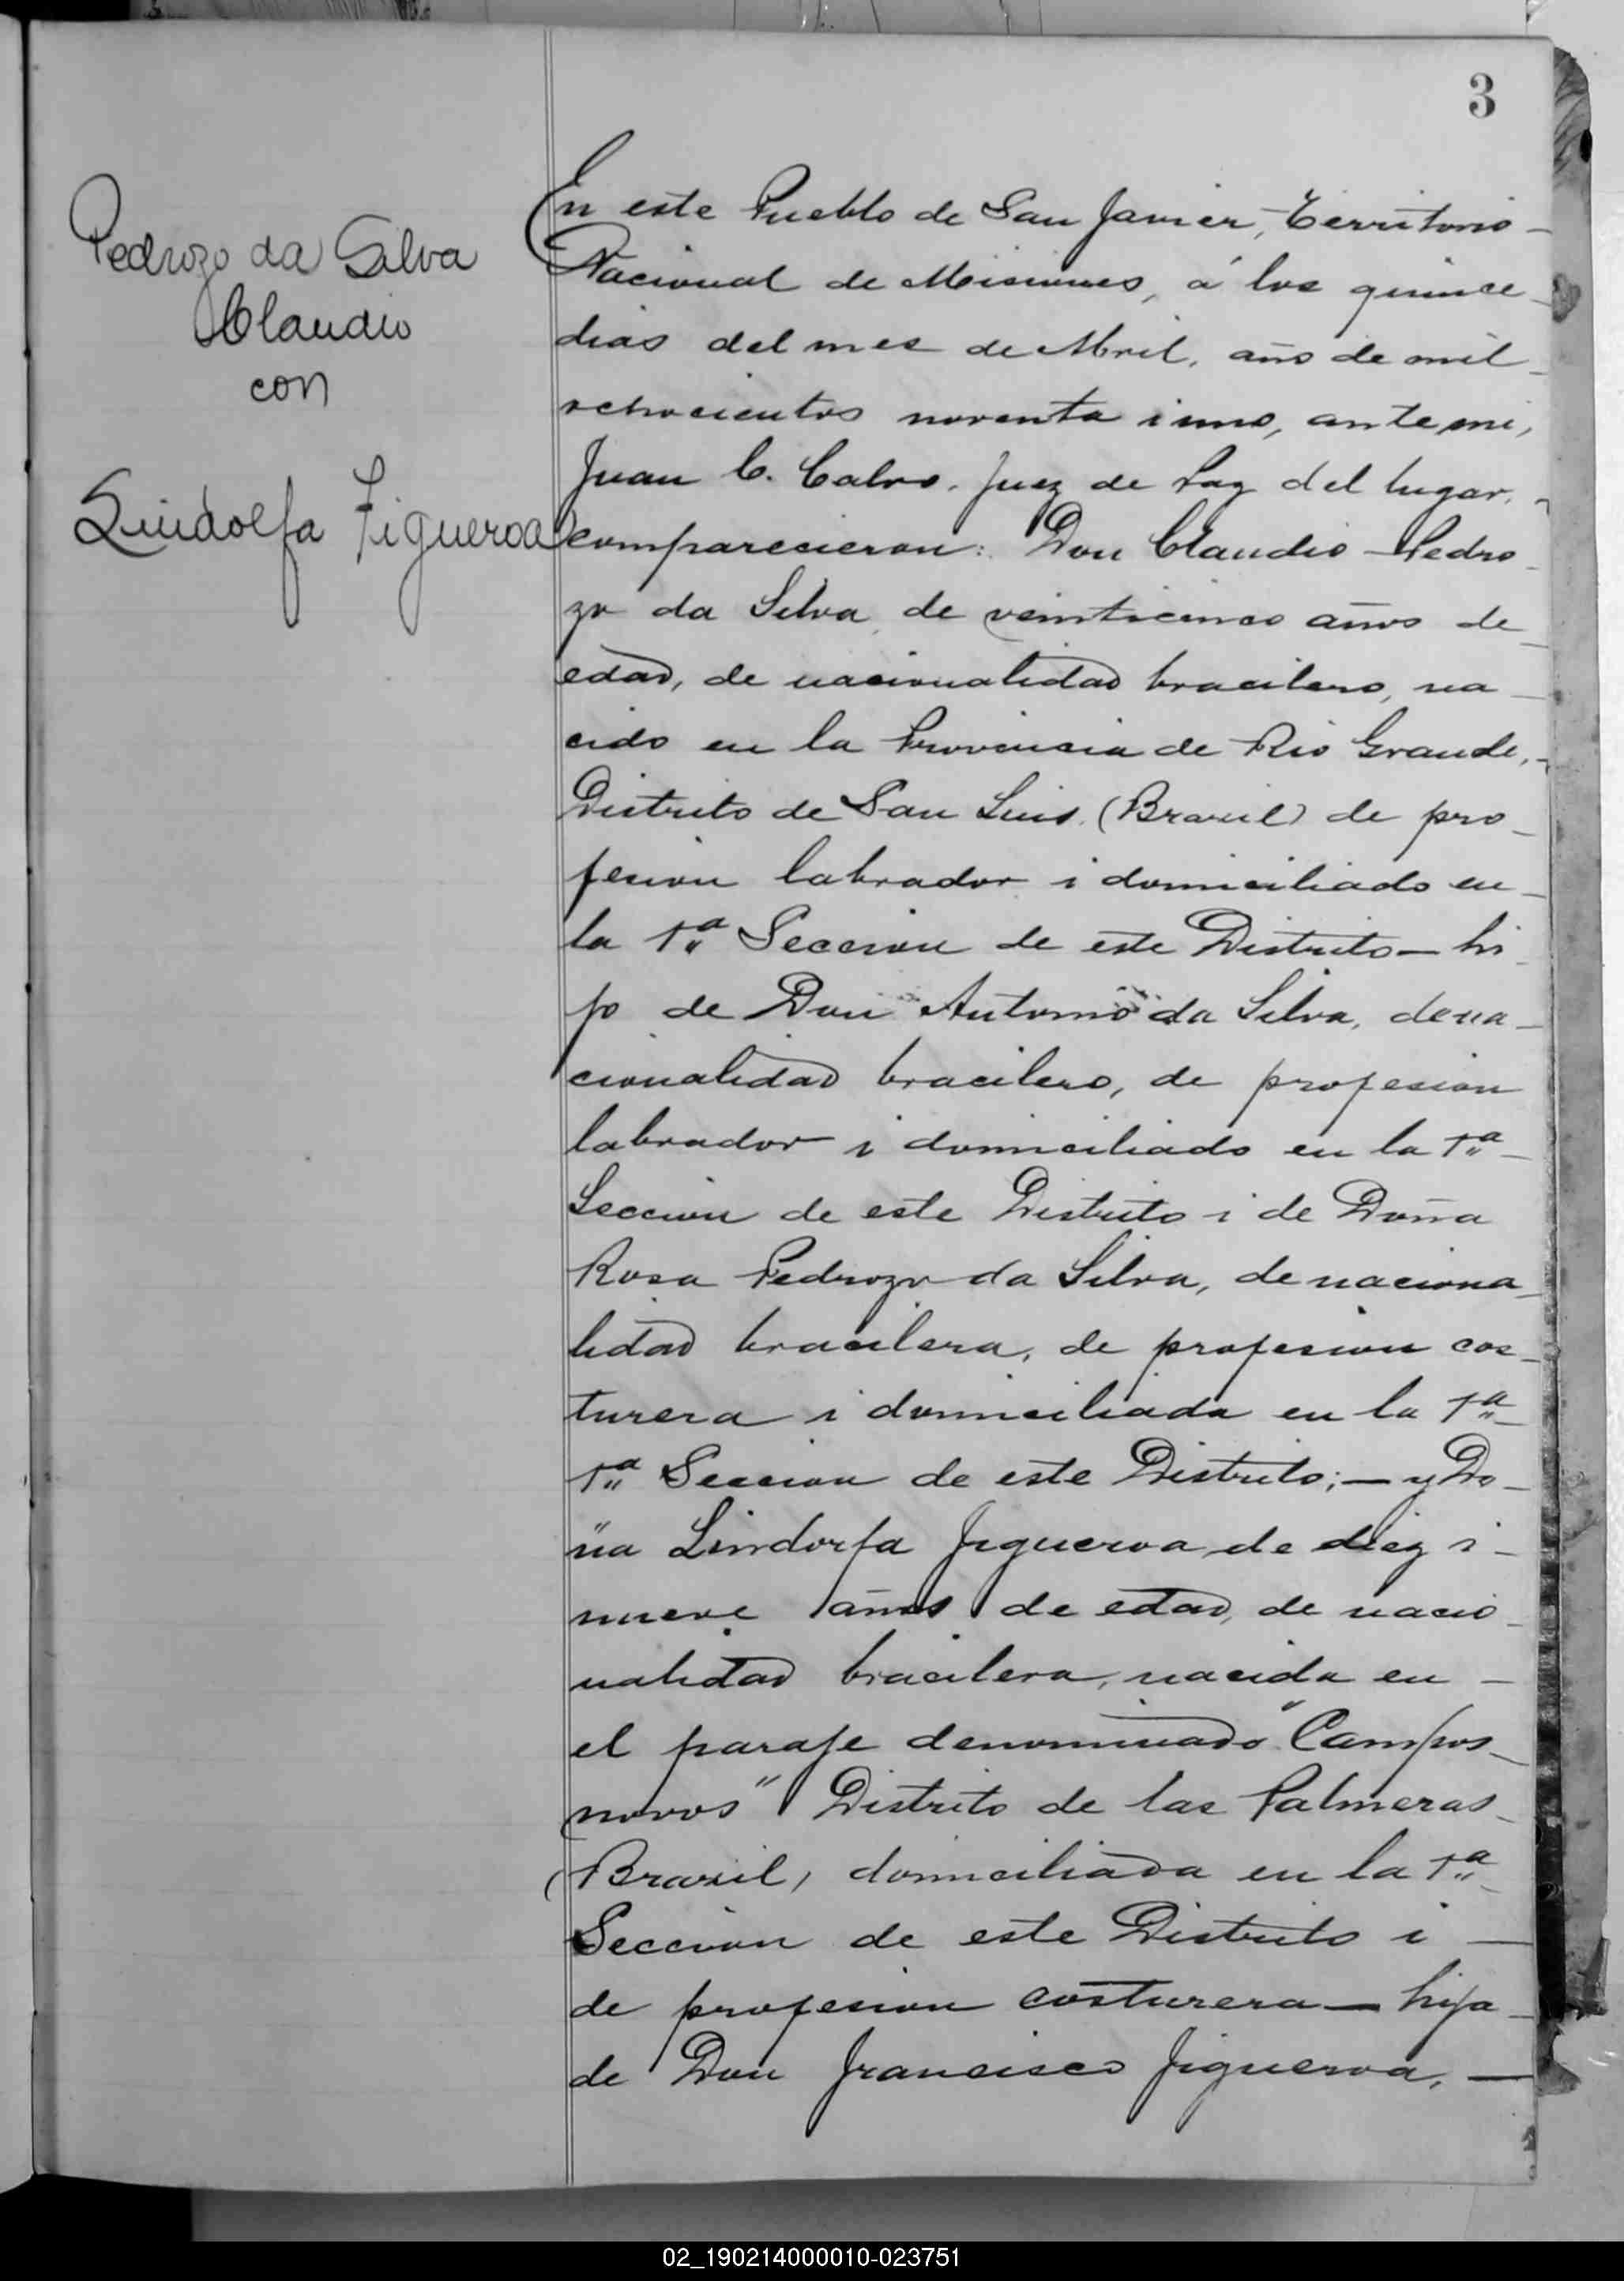 3
Pedrozo da Silva
Claudio
con
Lindolfa Figueroa
En este Pueblo de San Javier, Territorio
Nacional de Misiones, á los quince
dias del mes de Abril, año de mil
ochocientos noventa i uno, ante mi,
Juan C. Calvo, Juez de Paz del lugar,
comparecieron: Don Claudio Pedro
zo da Silva, de veinticinco años de
edad, de nacionalidad bracilero, na
cido en la Provincia de Rio Grande,
Distrito de San Luis (Brazil) de pro
fesion labrador i domiciliado en
la 1ª Seccion de este Distrito — hi
jo de Don Antonio da Silva, de na
cionalidad bracilero, de profesion
labrador i domiciliado en la 1ª
Seccion de este Distrito i de Doña
Rosa Pedrozo da Silva, de naciona
lidad bracilera, de profesion cos
turera i domiciliada en la 1ª
1ª Seccion de este Distrito; — y Do
ña Lindorfa Figueroa de diez i
nueve años de edad, de nacio
nalidad bracilera, nacida en
el paraje denominado "Campos
novos" Distrito de las Palmeras
(Brazil) domiciliada en la 1ª
Seccion de este Distrito i
de profesion costurera — hija
de Don Francisco Figueroa,
02_190214000010-023751